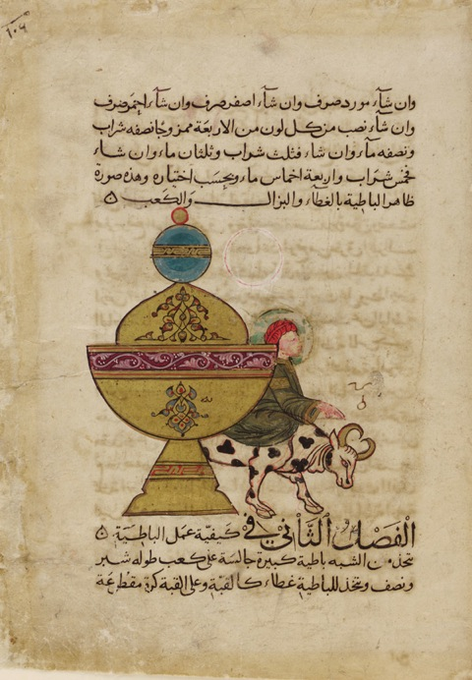 ١٠٤
وان شآء مورد صرف وان شآء اصفر صرف وان شآء احمر صرف
وان شآء نصب من كل لون من الاربعة ممزوجا نصفه شراب
ونصفه مآء وان شاء فثلث شراب وثلثان ماء وان شاء
فخمس شراب واربعة اخماس ماء وبحسب اختياره وهذه صورة
ظاهر الباطية بالغطآء والبزال والكعب ٥
الفصل الثاني في كيفية عمل الباطية ٥
تتخذ من الشبه باطية كبيرة جالسة على كعب طوله شبر
ونصف ويتخذ للباطية غطاء كالقبة وعلى القبة كرة مقطعة